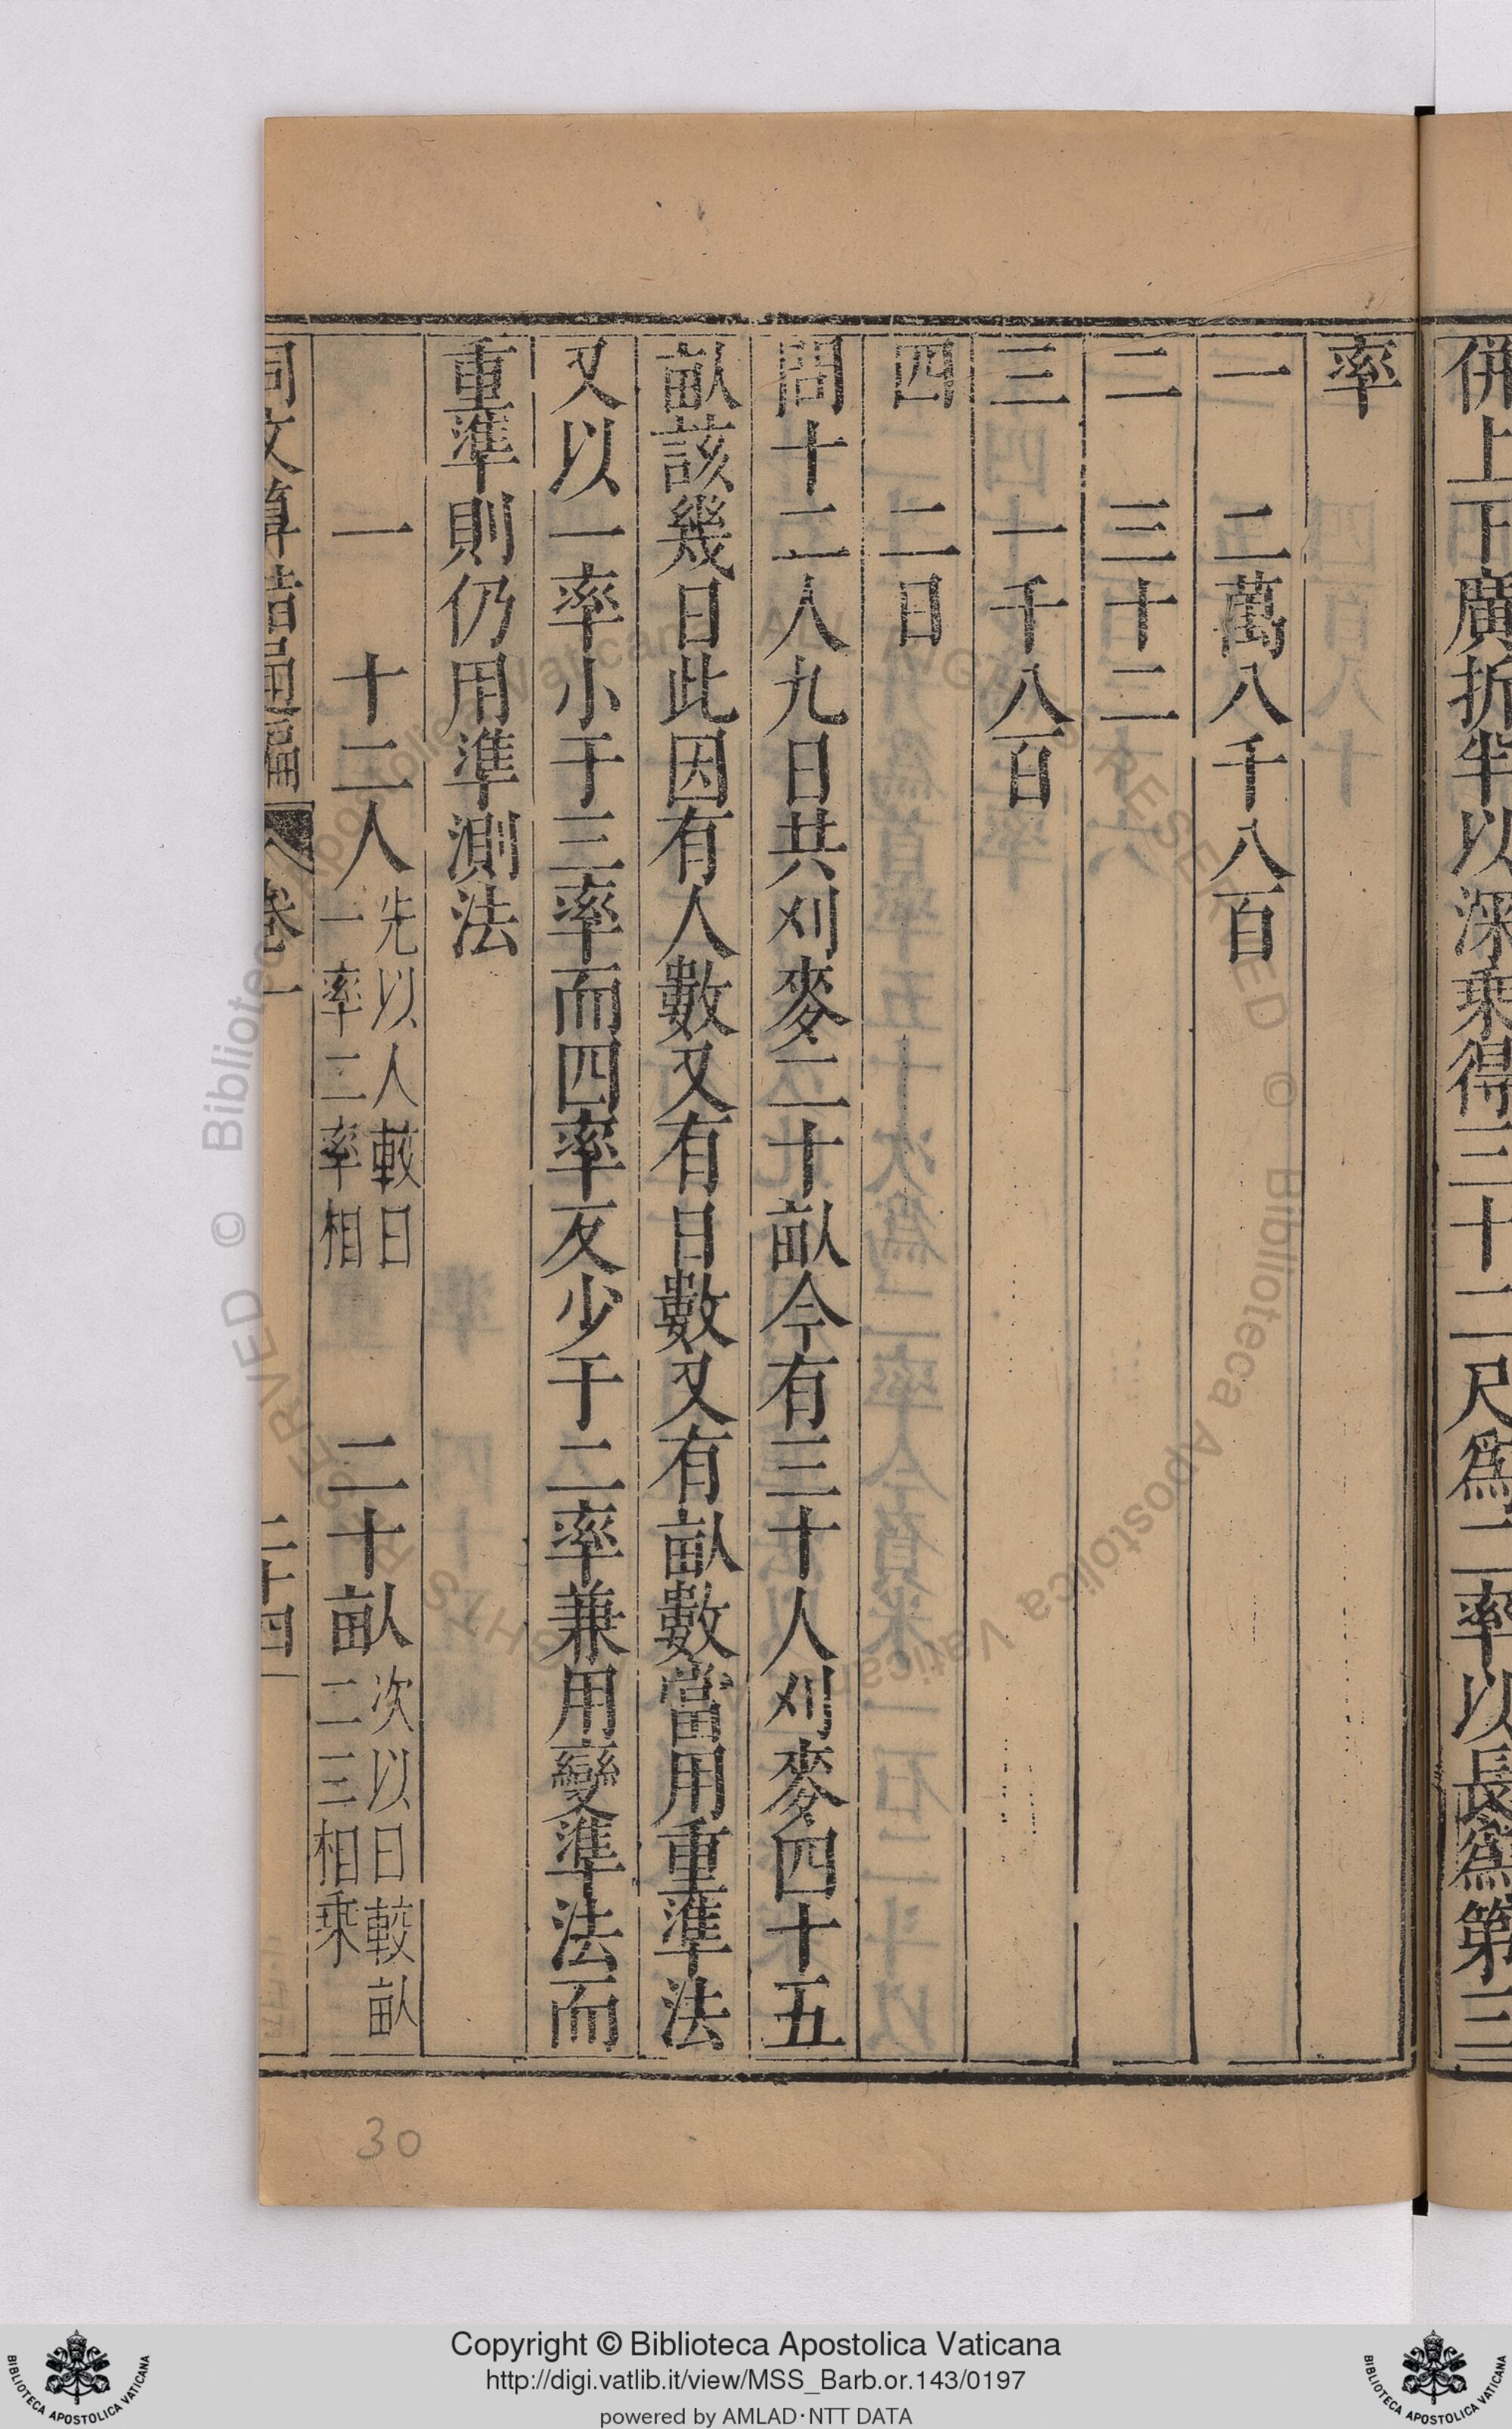 併上下廣折半以深乗得三十二尺爲二率以長爲第三
率
一　二萬八千八百
二　三十二
三　一千八百
四　二日
問十二人九日共刈麥二十畝今有三十人刈麥四十五
畝該幾日此因有人數又有日數又有畝數當用重準法
又以一率小于三率而四率反少于二率兼用變準法而
重準則仍用準測法
一　十二人　先以人較日
一率二率相
二十畝　次以日較畝
二三相乗
同文算指通編　卷一　二十四
30
© Biblioteca Apostolica Vaticana ALL RIGHTS RESERVED © Biblioteca Apostolica Vaticana ALL RIGHTS RESERVED
Copyright © Biblioteca Apostolica Vaticana
http://digi.vatlib.it/view/MSS_Barb.or.143/0197
powered by AMLAD·NTT DATA
BIBLIOTECA APOSTOLICA VATICANA
BIBLIOTECA APOSTOLICA VATICANA